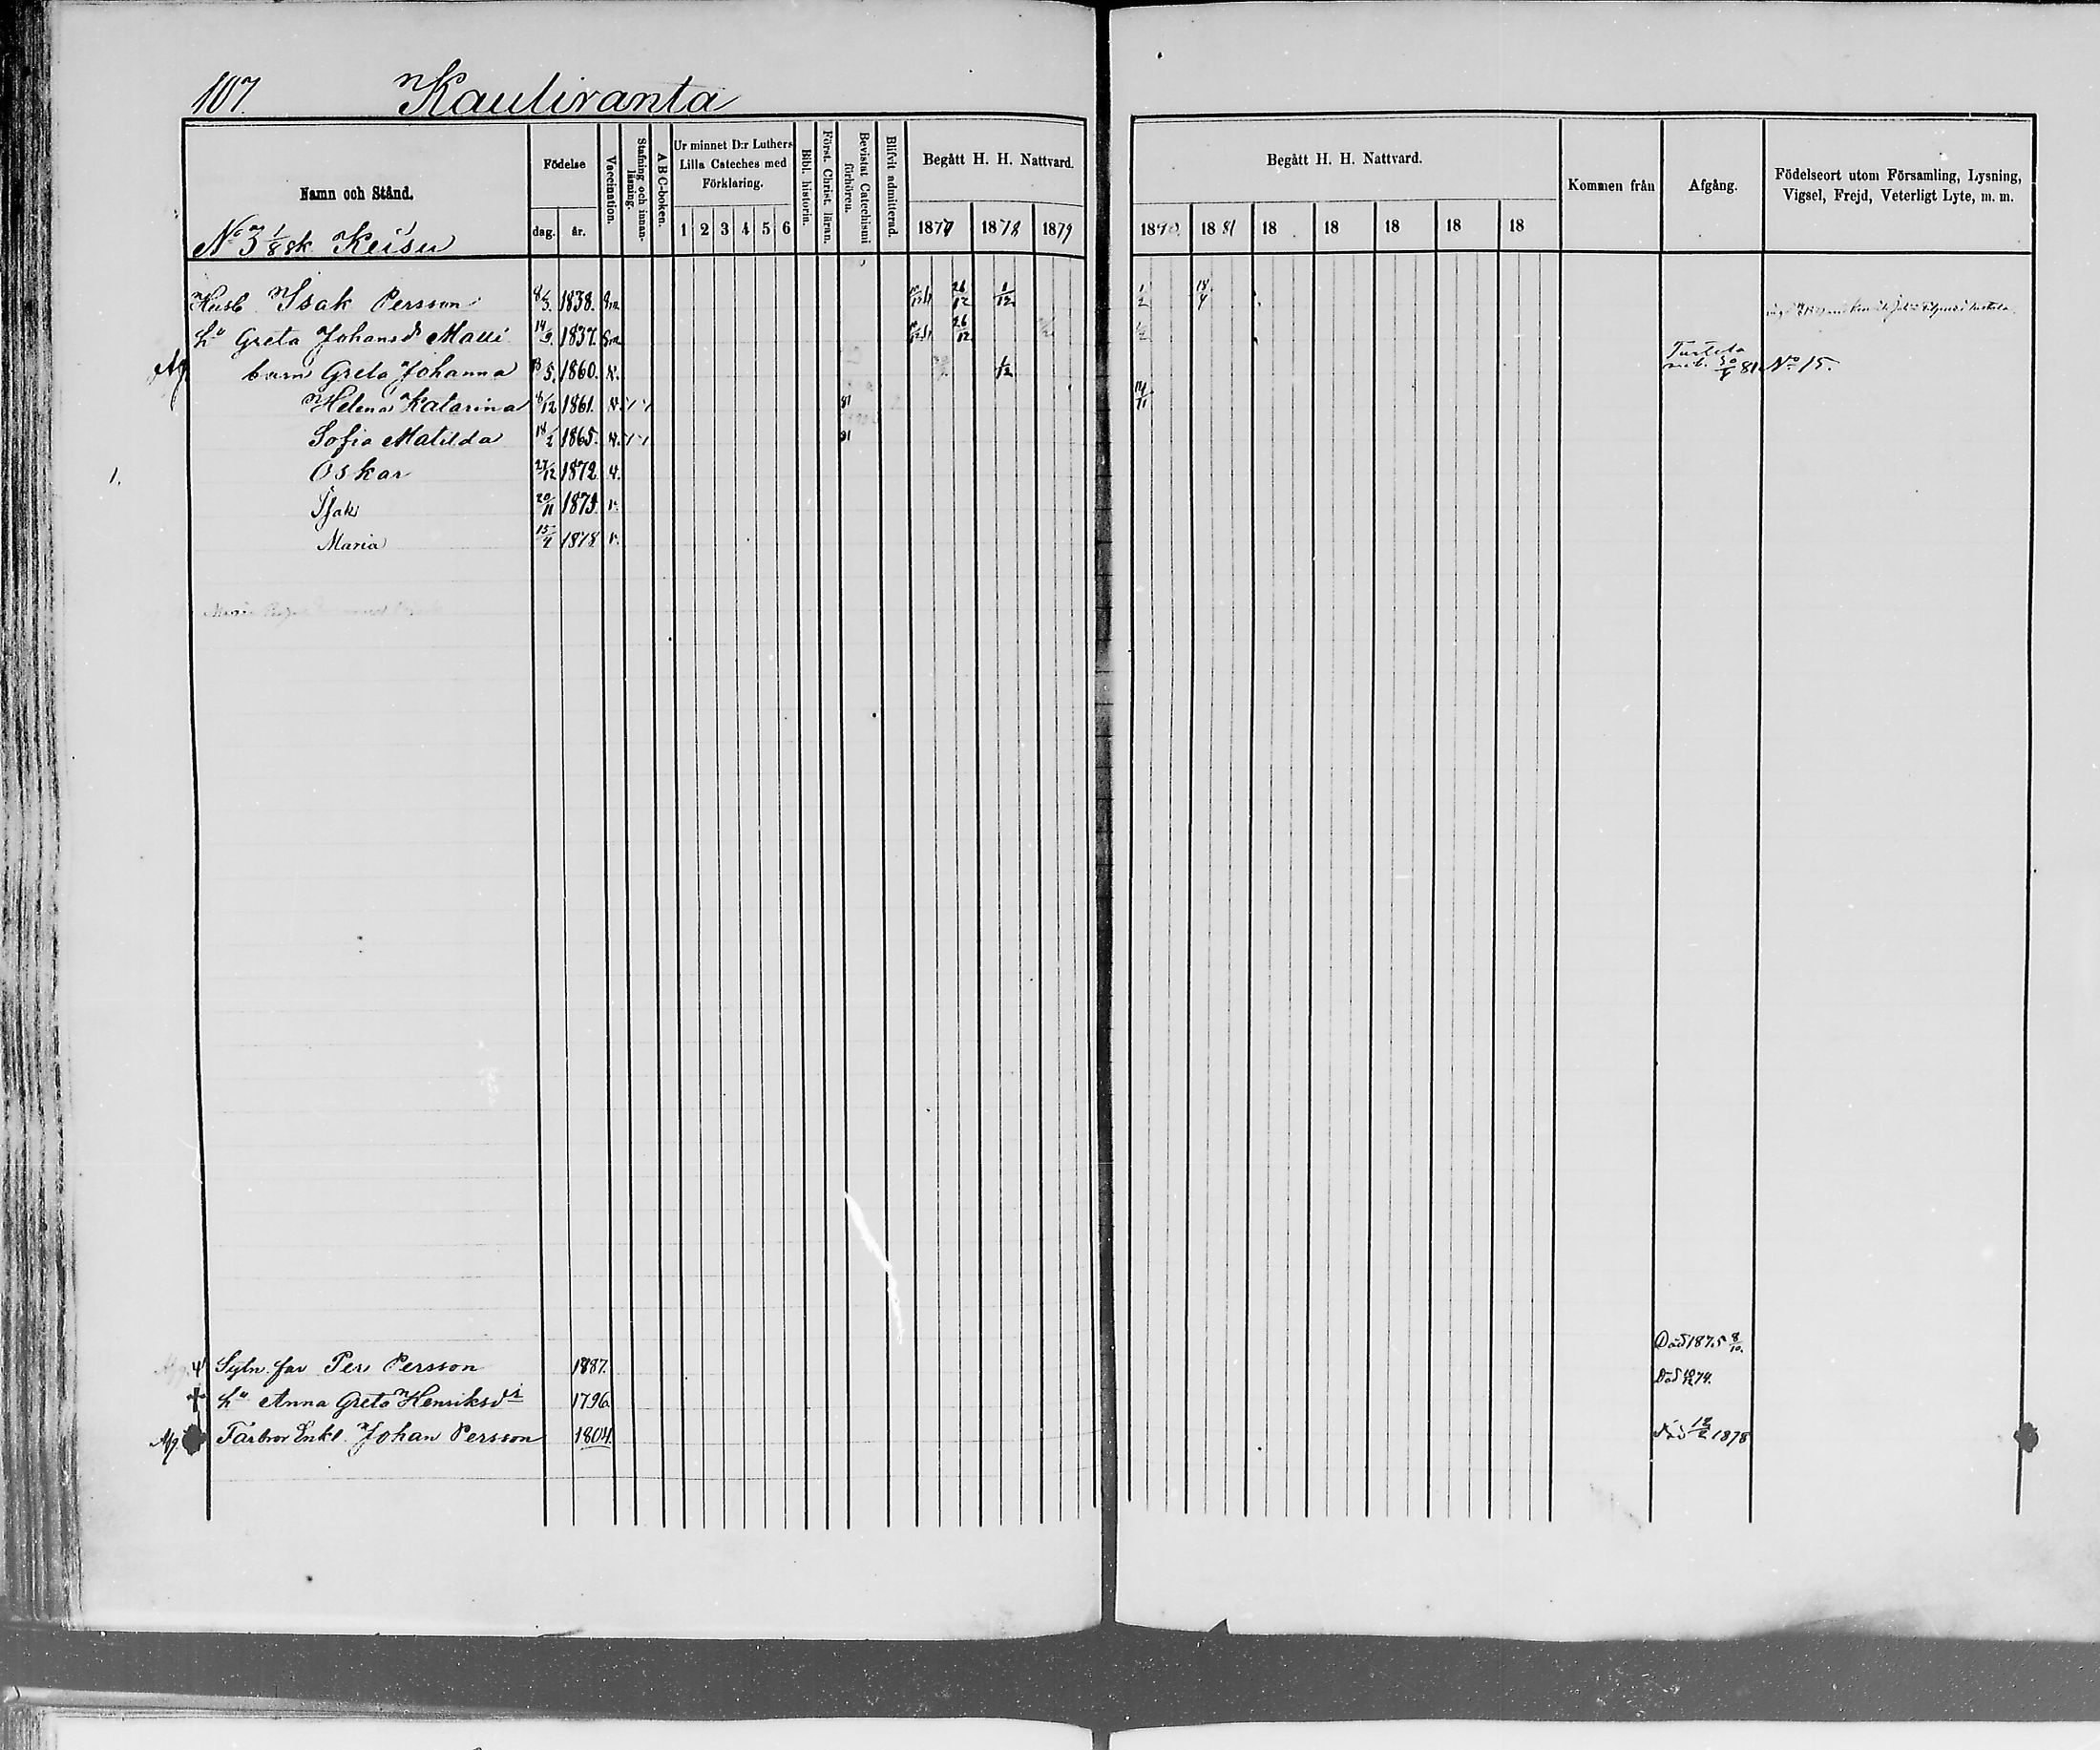 107. Kauliranta
Namn och Stånd.
Födelse
dag. år.
Vaccination.
Stafning och innanläsning.
A B C-boken.
Ur minnet D:r Luthers Lilla Cateches med Förklaring.
1 2 3 4 5 6
Bibl. historia.
Först. Christ. läran.
Bevistat Catechismi förhören.
Blifvit admitterad.
Begått H. H. Nattvard.
1877 1878 1879
Begått H. H. Nattvard.
1880. 1881 18 18 18 18 18
Kommen från
Afgång.
Födelseort utom Församling, Lysning, Vigsel, Frejd, Veterligt Lyte, m. m.
No 3 1/8 sk. Keisu
Husb. Isak Persson 8/3. 1838. 26/12 1/12 1/2 18/4
hu Greta Johansdr Malli 14/9. 1837. 26/12 1/2
Afg barn Greta Johanna 1860. v. 1/12 Turtola 81. No 15.
Helena Katarina 8/12 1861. v. 81 14/11
Sofia Matilda 18/2 1865. v. 81
1. Oskar 27/12 1872 v.
Isak 20/11 1875. v.
Maria 15/2 1878 v.
Död 1875 8/10.
Sytn. far Per Persson 1887.
hu Anna Greta Henriksdr 1796 Död 74.
Afg. Farbror Enkl. Johan Persson 1804. död 12/2 1878